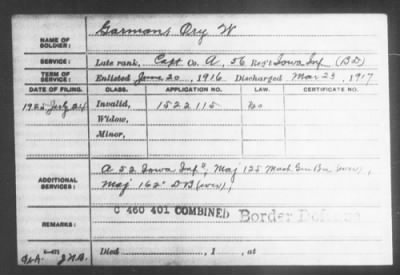 NAME OF SOLDIER: Garmans Ory W
SERVICE: Late rank, Capt Co. A, 56 Reg't Iowa Inf (BD)
TERM OF SERVICE: Enlisted June 20, 1916. Discharged Mar 23, 1917
DATE OF FILING. CLASS. APPLICATION NO. LAW. CERTIFICATE NO.
1925 July 24 Invalid, 1522115 No
Widow,
Minor,
ADDITIONAL SERVICES: A 52 Iowa Inf, Maj 125 Mach Gun Bn (ww),
Maj 162 DB (ww),
C 460 401 COMBINED Border
REMARKS:
Died , 1 , at